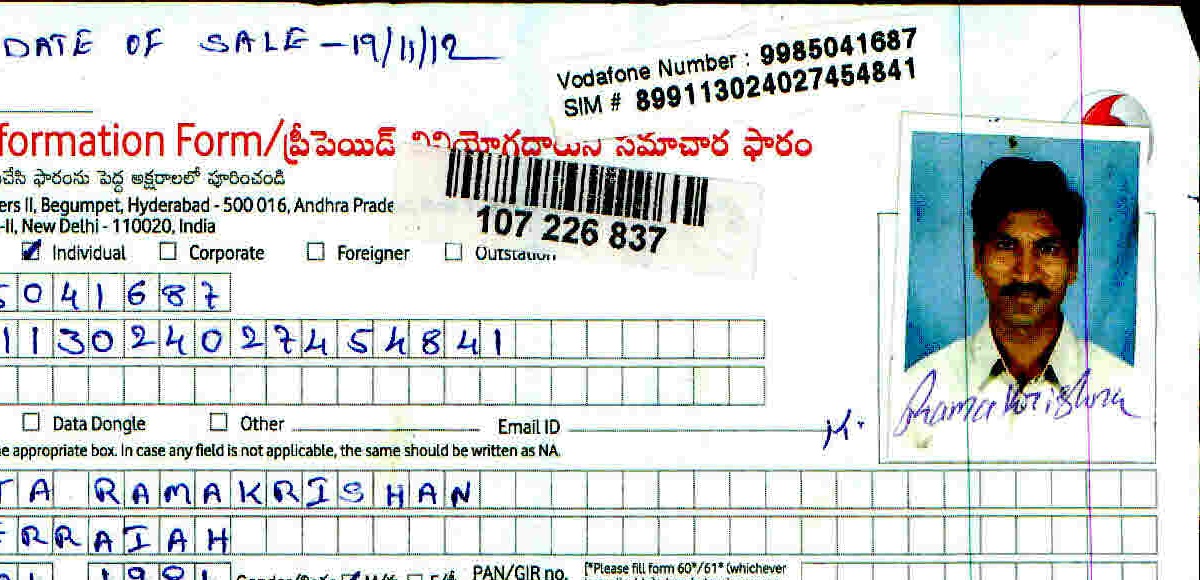 DATE OF SALE - 19/11/12
Vodafone Number : 9985041687
SIM # 899113024027454841
formation Form/ప్రీపెయిడ్ వినియోగదారుని సమాచార ఫారం
చేసి ఫారంను పెద్ద అక్షరాలలో పూరించండి
ers II, Begumpet, Hyderabad - 500 016, Andhra Prade
-II, New Delhi - 110020, India
107 226 837
Individual Corporate Foreigner Outstation
5041687
113024027454841
Data Dongle Other Email ID
K. Ramakrishna
e appropriate box. In case any field is not applicable, the same should be written as NA.
TA RAMAKRISHAN
ERRAIAH
1981
PAN/GIR no. [*Please fill form 60*/61* (whichever